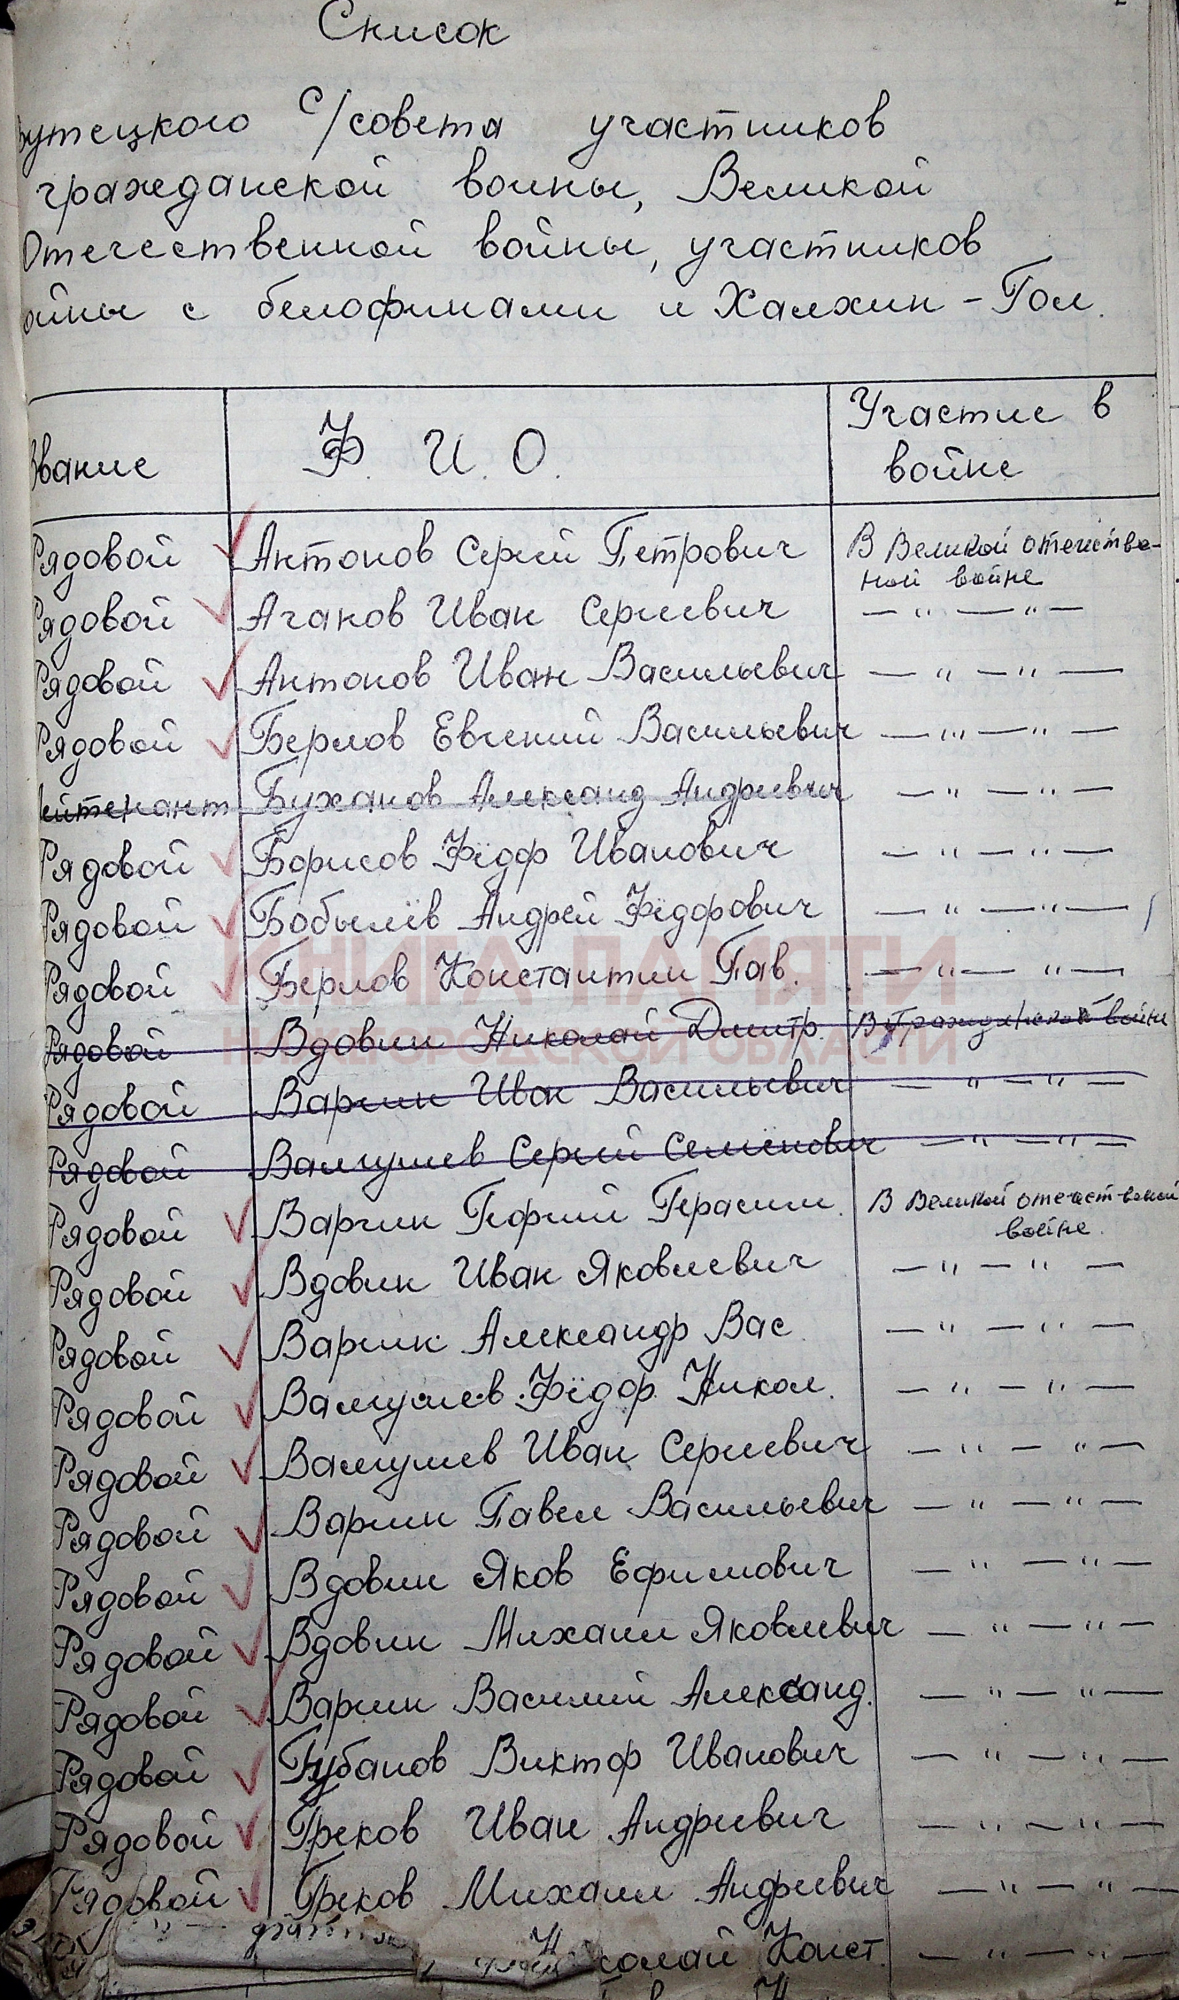 Список
бутецкого с/совета участников
гражданской войны, Великой
Отечественной войны, участников
ойны с белофинами и Халхин-Гол.
Звание Ф. И. О. Участие в
войне
Рядовой Антонов Сергей Петрович В Великой отечестве-
ной войне
Рядовой Аганов Иван Сергеевич — " — " —
Рядовой Антонов Иван Васильевич — " — " —
Рядовой Берлов Евгений Васильевич — " — " —
лейтенант Буханов Александ Андреевич — " — " —
Рядовой Борисов Фёдор Иванович — " — " —
Рядовой Бобылёв Андрей Фёдорович — " — " —
Рядовой Берлов Константин Пав. — " — " —
КНИГА ПАМЯТИ
НИЖЕГОРОДСКОЙ ОБЛАСТИ
Рядовой Вдовин Николай Дмитр. В Гражданской войне
Рядовой Варгин Иван Васильевич — " — " —
Рядовой Валгушев Сергей Семёнович — " — " —
Рядовой Варгин Георгий Герасим. В Великой отечественой
войне.
Рядовой Вдовин Иван Яковлевич — " — " —
Рядовой Варгин Александр Вас. — " — " —
Рядовой Валгушев Фёдор Никол. — " — " —
Рядовой Валгушев Иван Сергеевич — " — " —
Рядовой Варгин Павел Васильевич — " — " —
Рядовой Вдовин Яков Ефимович — " — " —
Рядовой Вдовин Михаил Яковлевич — " — " —
Рядовой Варгин Василий Александ. — " — " —
Рядовой Губанов Виктор Иванович — " — " —
Рядовой Греков Иван Андреевич — " — " —
Рядовой Греков Михаил Андреевич — " — " —
колай Конст. — " — " —